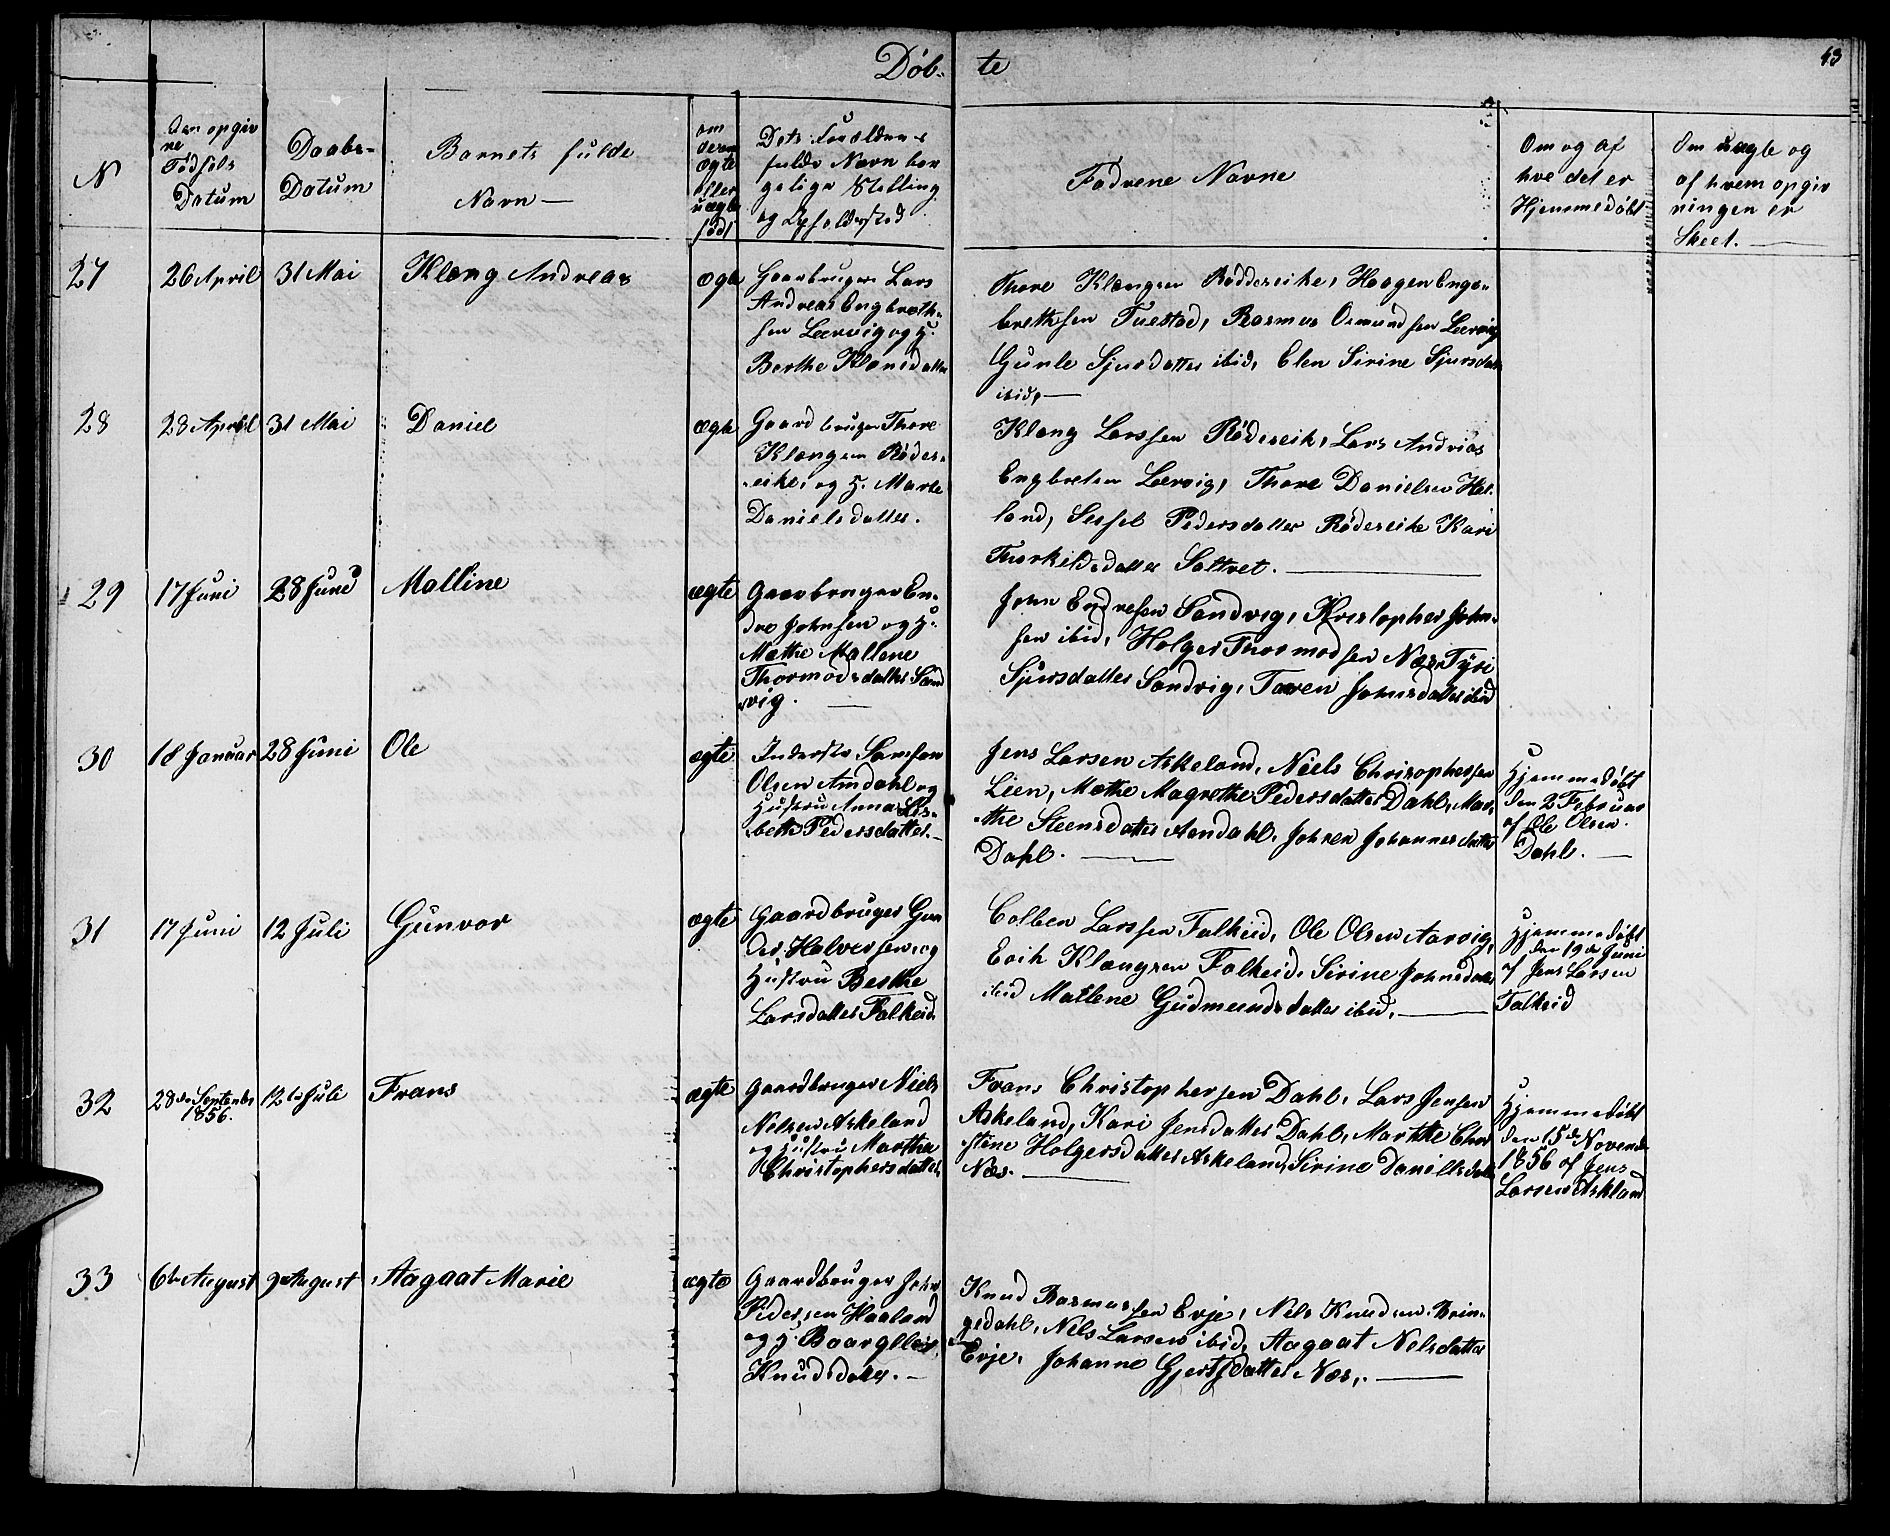 Døb- te
43
N
Den opgiv
ne
Fødsels
Datum
Daabs-
Datum
Barnets fulde
Navn —
om
deres
ægte
eller
uægte
født
Dets Forældres
fulde Navn bor
gelige Stelling
og Opholdssted
Fadrene Navne
Om og af
hve det er
Hjemmedøbt
Om uægte og
af hvem opgiv
ningen er
Skeet. —
27
26 April
31 Mai
Klæng Andreas
ægte
Gaarbruger Lars
Andreas Engbreth-
sen Lærvig og H.
Berthe Klænsdatter
Thore Klængsen Røddereike, Haagen Enge-
brethsen Tuestad, Rasmus Osmundsen Lærvig
Gunle Sjursdatter ibid, Elen Sirine Sjursdatt
ibid, —
28
28 April
31 Mai
Daniel
ægte
Gaardbruger Thore
Klængsen Røder-
eike, og H. Marte
Danielsdatter.
Klæng Larssen Rødereik, Lars Andrias
Engbretsen Lærvig, Thore Danielsen Het-
land, Sessel Pedersdatter Rødereike Kari
Thorkildsdatter Søttvet. —
29
17 Juni
28 Juni
Malline
ægte
Gaarbruger En-
dre Johnsen og H.
Mæthe Mallene
Thormodsdatter Sand
vig. —
John Endresen Sandvig, Kristopher John-
sen ibid, Holger Thormodsen Næs, Tyri
Sjursdatter Sandvig, Taren Johnsdatter ibid
30
18 Januar
28 Juni
Ole
ægte
Inderste Samson
Olsen Amdahl og
Hustru Anna Lis-
beth Pedersdatter. —
Jens Larsen Askeland, Niels Chrisophersen
Lien, Mæthe Magrethe Pedersdatter Dahl, Mar-
the Steensdatter Amdahl, Johren Johannesdatter
Dahl. —
Hjemmedøbt
den 2 Februar
af Ole Olsen
Dahl. —
31
17 Juni
12 Juli
Gunvor
ægte
Gaardbruger Gun
der Halversen og
Hustru Berthe
Larsdatter Falkeid
Colben Larssen Falkeid, Ole Olsen Aarvig,
Erik Klængsen Falkeid, Sirine Johnsdatter
ibid Mallene Gudmundsdatter ibid. —
Hjemmedøbt
den 19de Juni
af Jens Larsen
Falkeid
32
28de September
1856.
12te Juli
Frans
ægte
Gaardbruger Niels
Nelsen Askeland
og Hustru Marthe
Christophersdatter.
Frans Christophersen Dahl, Lars Jensen
Askeland, Kari Jensdatter Dahl, Marthe Chri
stene Holgersdatter Askeland, Sirine Danielsdatt
Næs. —
Hjemmedøbt
den 15de Novemb
1856 af Jens
Larsen Askland
33
6te August
9de August
Aagaat Marie
ægte
Gaardbruger John
Pedersen Haaland
og H.
Knudsdater. —
Knud Rasmussen Evje, Nels Knudsen Brin-
gedahl, Nels Larsen ibid, Aagaat Nelsdatter
Evje, Johanne Gjertsdatter Næs, —